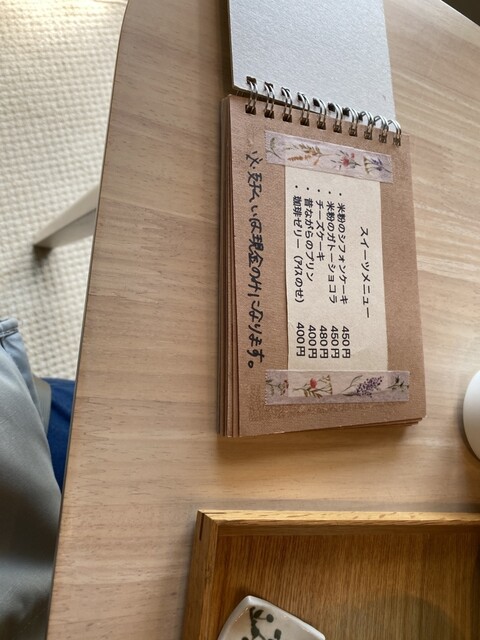 スイーツメニュー
・米粉のシフォンケーキ 450円
・米粉のガトーショコラ 450円
・チーズケーキ 480円
・昔ながらのプリン 400円
・珈琲ゼリー（アイスのせ） 400円
※お支払いは現金のみになります。